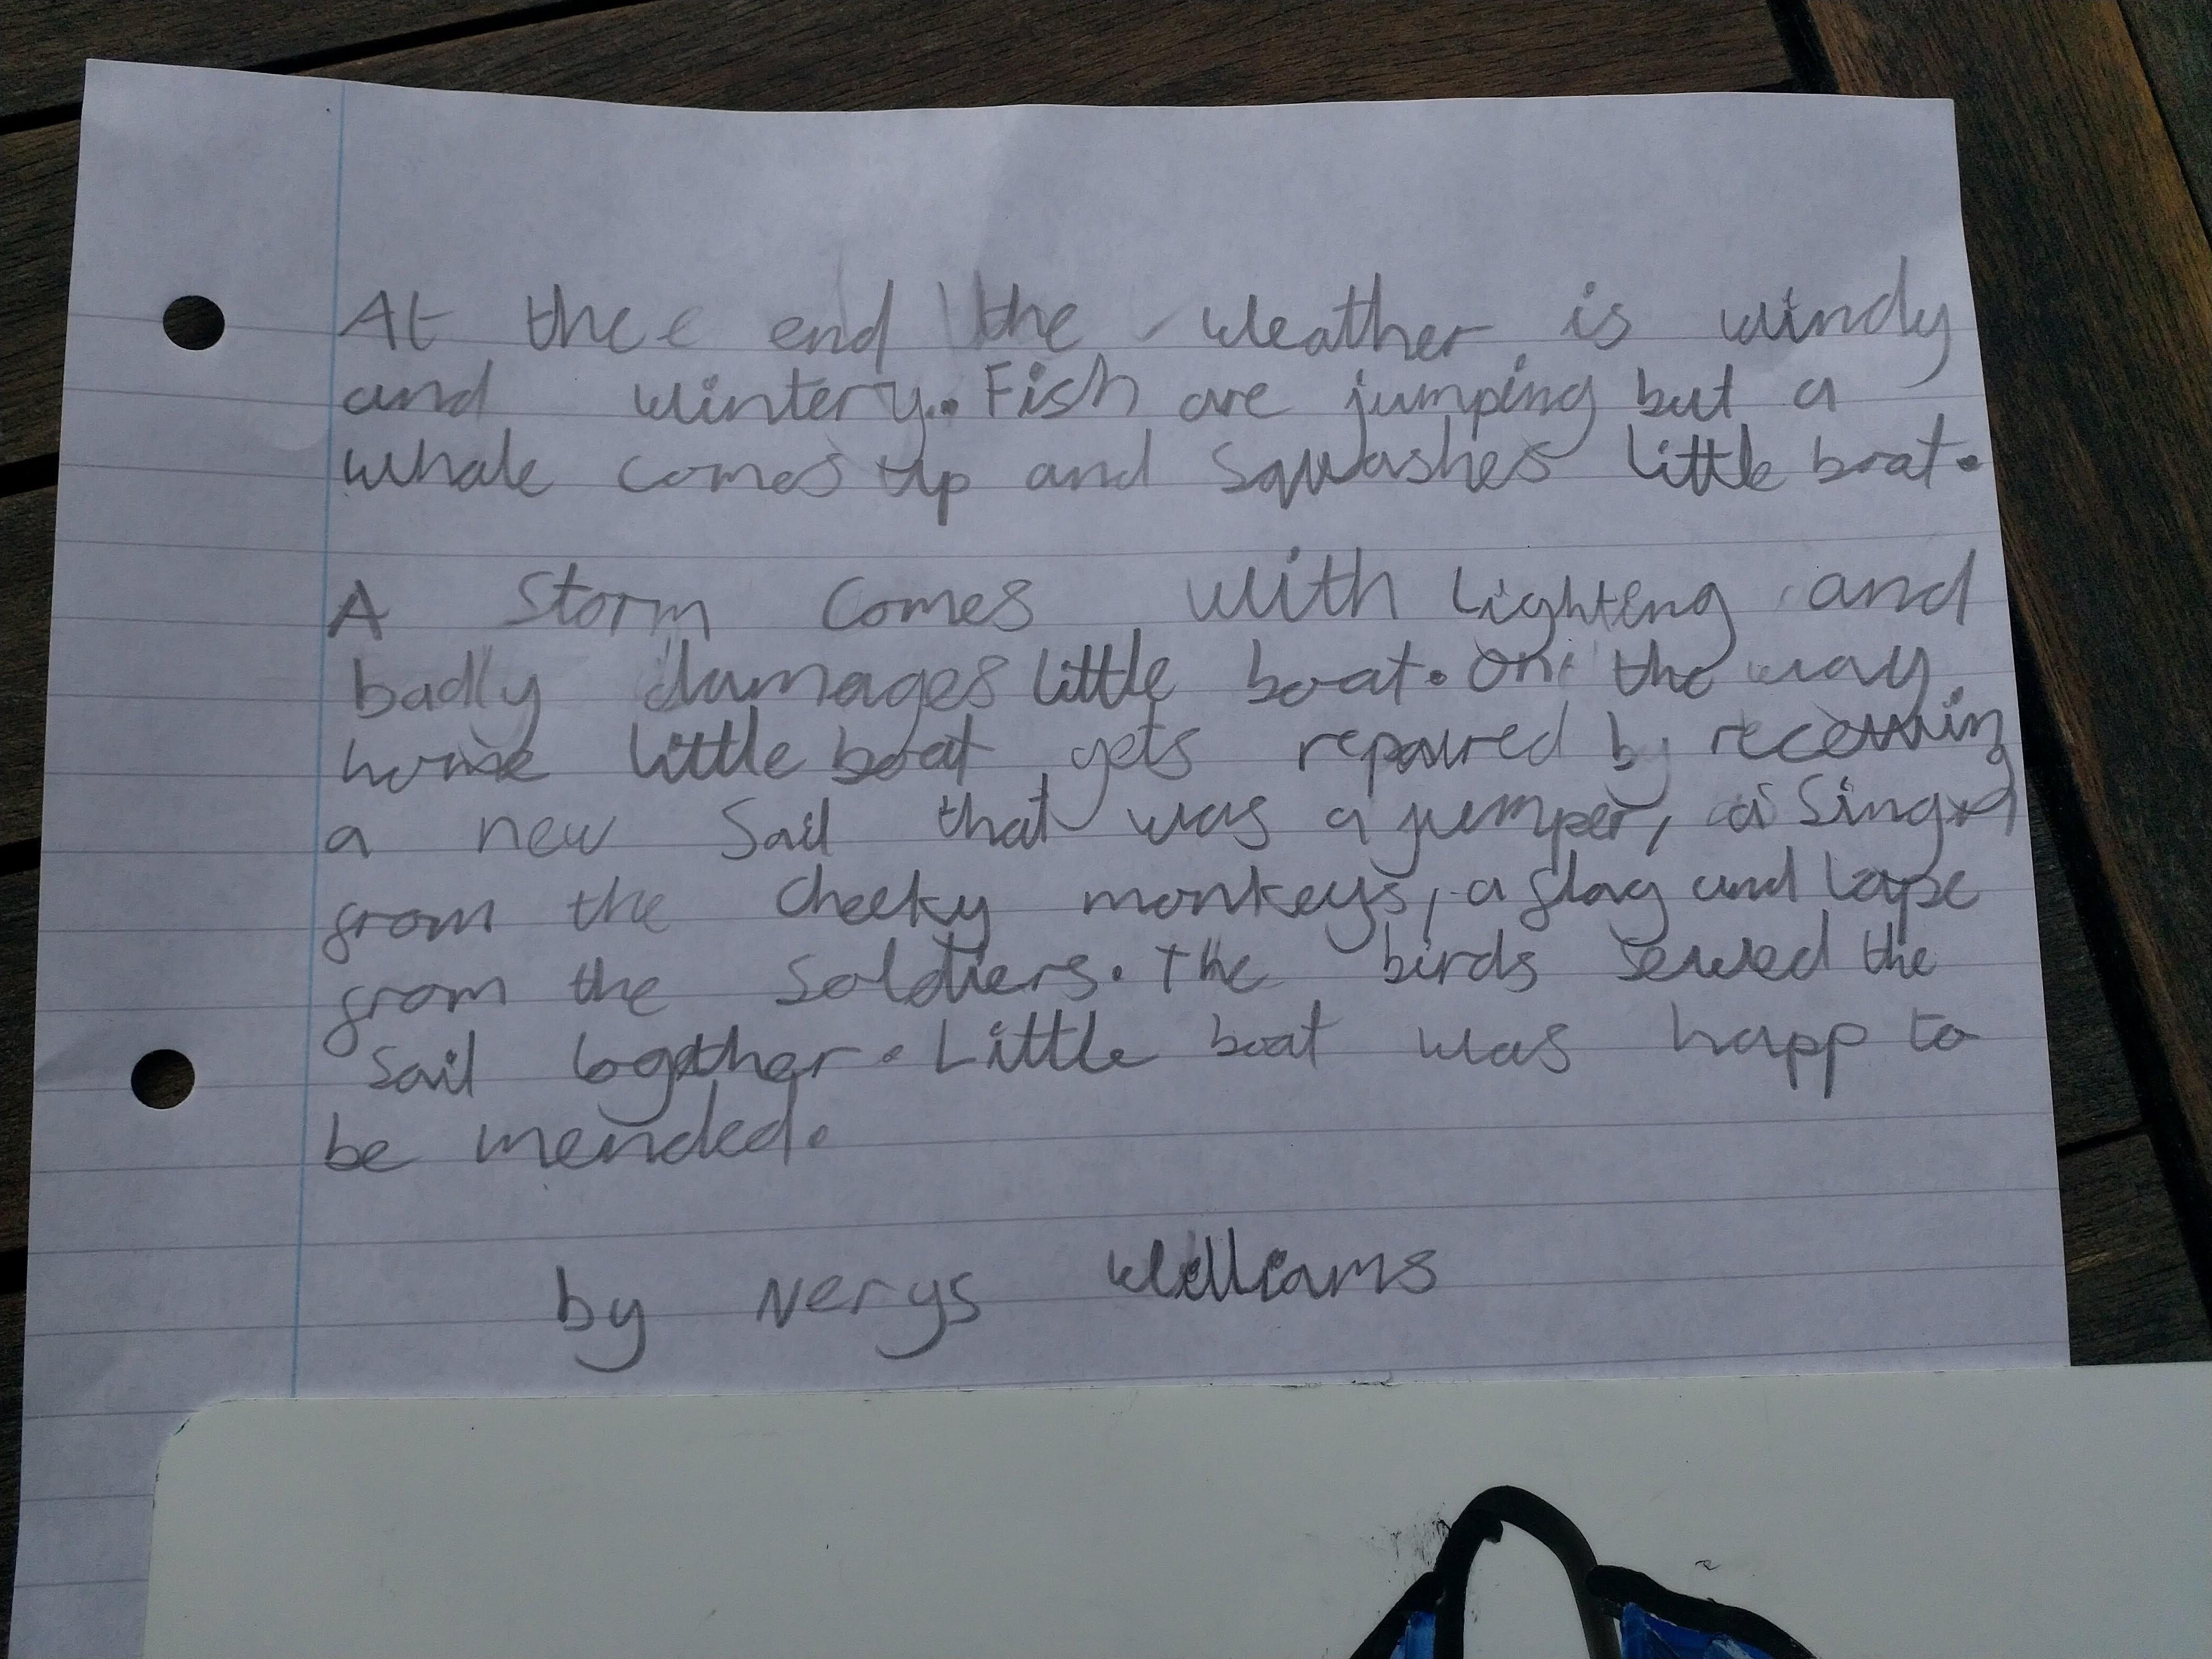 At the e end the weather is windy
and wintery. Fish are jumping but a
whale comes up and squashes little boat.
A storm comes with Lighting and
badly damages little boat. On the way
home little boat gets repaired by
a new sail that was a jumper, a
from the cheeky monkeys, a flag and
from the soldiers. The birds sewed the
sail together. Little boat was happ to
be mended.
by Nerys Williams